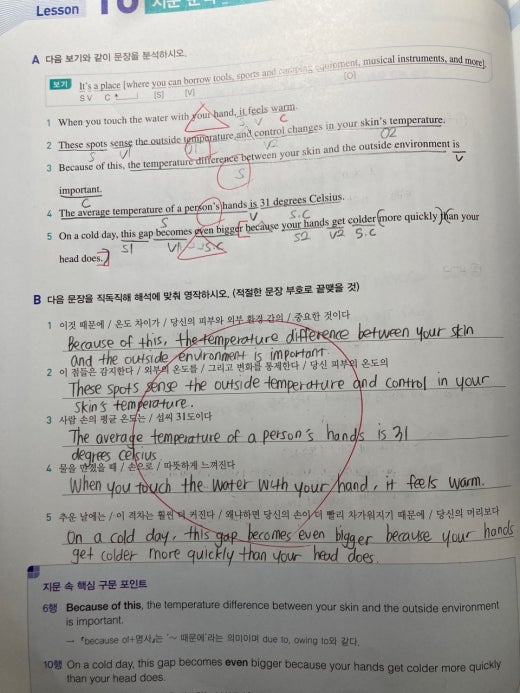 Lesson 10 지문 분
A 다음 보기와 같이 문장을 분석하시오.
보기 It's a place [where you can borrow tools, sports and camping equipment, musical instruments, and more].
S V C [S] [V] [O]
1 When you touch the water with your hand, it feels warm.
S V C
2 These spots sense the outside temperature and control changes in your skin's temperature.
S V1 O1 V2 O2
3 Because of this, the temperature difference between your skin and the outside environment is
S V
important.
C
4 The average temperature of a person's hands is 31 degrees Celsius.
S V S.C
5 On a cold day, this gap becomes even bigger [because your hands get colder (more quickly) (than your
S1 V1 S.C S2 V2 S.C
head does.]
B 다음 문장을 직독직해 해석에 맞춰 영작하시오. (적절한 문장 부호로 끝맺을 것)
1 이것 때문에 / 온도 차이가 / 당신의 피부와 외부 환경 간의 / 중요한 것이다
Because of this, the temperature difference between your skin
and the outside environment is important.
2 이 점들은 감지한다 / 외부의 온도를 / 그리고 변화를 통제한다 / 당신 피부의 온도의
These spots sense the outside temperature and control in your
skin's temperature.
3 사람 손의 평균 온도는 / 섭씨 31도이다
The average temperature of a person's hands is 31
degrees celsius.
4 물을 만졌을 때 / 손으로 / 따뜻하게 느껴진다
When you touch the water with your hand, it feels warm.
5 추운 날에는 / 이 격차는 훨씬 더 커진다 / 왜냐하면 당신의 손이 더 빨리 차가워지기 때문에 / 당신의 머리보다
On a cold day, this gap becomes even bigger because your hands
get colder more quickly than your head does.
지문 속 핵심 구문 포인트
6행 Because of this, the temperature difference between your skin and the outside environment
is important.
→ 『because of+명사』는 '~ 때문에'라는 의미이며 due to, owing to와 같다.
10행 On a cold day, this gap becomes even bigger because your hands get colder more quickly
than your head does.